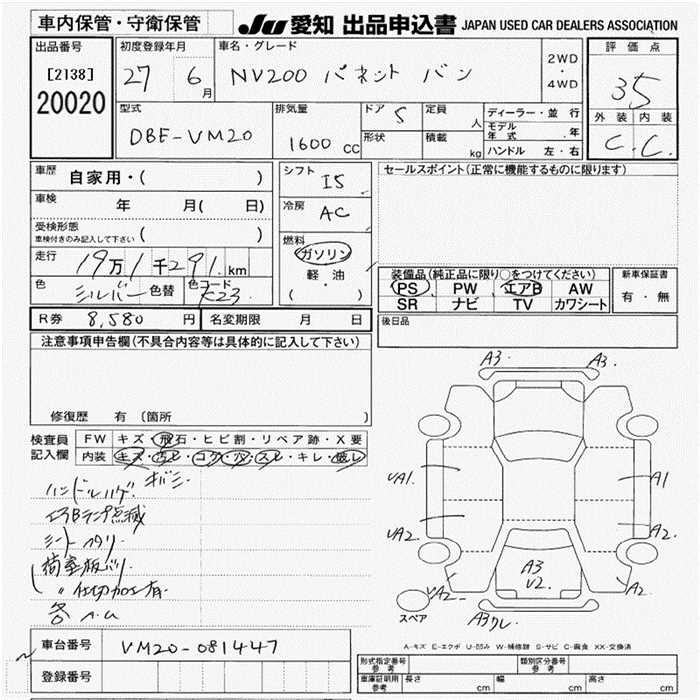 車内保管・守衛保管
JU 愛知 出品申込書 JAPAN USED CAR DEALERS ASSOCIATION
出品番号
[2138]
20020
初度登録年月
27 6月
車名・グレード
NV200 バネット バン
2WD
・
4WD
評価点
3.5
外装 内装
C. C.
型式
DBE-VM20
排気量
1600 cc
ドア 5
形状
定員 人
積載 kg
ディーラー・並行
モデル年式 ・年
ハンドル 左・右
車歴 自家用・( )
車検 年 月( 日)
受検形態
車検付きのみ記入して下さい ( )
走行 19万1千291km
色 シルバー 色替 色コード K23
シフト I5
冷房 AC
燃料
ガソリン
軽・油
( ・ )
セールスポイント(正常に機能するものに限ります)
装備品(純正品に限り○をつけてください)
PS PW エアB AW
SR ナビ TV カワシート
新車保証書
有・無
後日品
R券 8,580 円
名変期限 月 日
注意事項申告欄(不具合内容等は具体的に記入して下さい)
修復歴 有 (箇所 )
検査員記入欄
FW キズ・飛石・ヒビ割・リペア跡・X要
内装 キズ・汚レ・コゲ・穴・スレ・キレ・破レ
ハンドルハゲ. キバミ
エアBランプ点滅
シート ヘタリ
荷室板バリ.
〃 仕切加工有.
各 ヘコ
A3. A3.
UA1. A1
UA2. A2.
UA2 A2
A3
U2.
A3クレ.
スペア
A-キズ E-エクボ U-凹み W-補修跡 S-サビ C-腐食 XX-交換済
車台番号 VM20-081447
登録番号
形式指定番号
参考
類別区分番号
参考
車庫証明用
参考
長さ cm 幅 cm 高さ cm